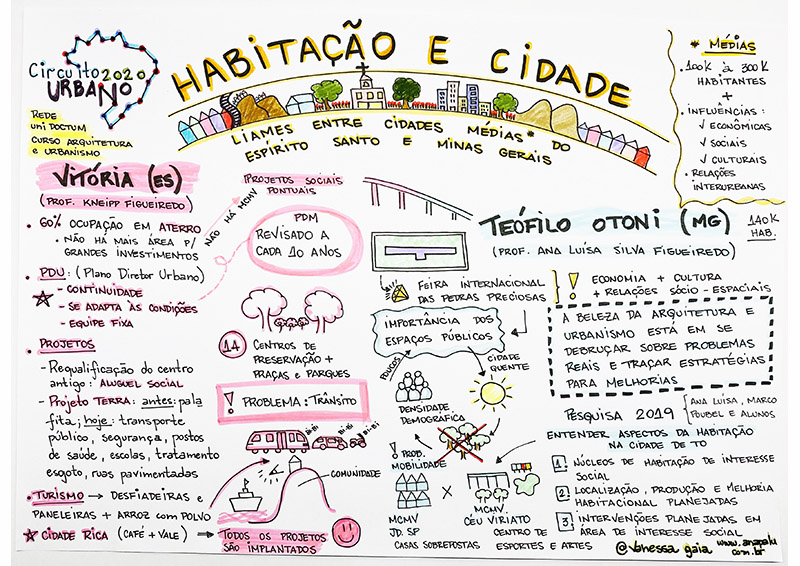 Circuito 2020
URBANO
REDE
UNIDOCTUM
CURSO ARQUITETURA
E URBANISMO
HABITAÇÃO E CIDADE
LIAMES ENTRE CIDADES MÉDIAS* DO
ESPÍRITO SANTO E MINAS GERAIS
* MÉDIAS
. 100K à 300K
HABITANTES
+
. INFLUÊNCIAS:
√ ECONÔMICAS
√ SOCIAIS
√ CULTURAIS
. RELAÇÕES
INTERURBANAS
VITÓRIA (ES)
(PROF. KNEIPP FIGUEIREDO)
. 60% OCUPAÇÃO EM ATERRO
. NÃO HÁ MAIS ÁREA P/
GRANDES INVESTIMENTOS
. PDU: (Plano Diretor Urbano)
- CONTINUIDADE
- SE ADAPTA ÀS CONDIÇÕES
- EQUIPE FIXA
. PROJETOS
- Requalificação do centro
antigo: ALUGUEL SOCIAL
- Projeto TERRA: antes: pala
fita; hoje: transporte
público, segurança, postos
de saúde, escolas, tratamento
esgoto, ruas pavimentadas
. TURISMO → DESFIADEIRAS E
PANELEIRAS + ARROZ com POLVO
CIDADE RICA (CAFÉ + VALE) →
TODOS OS PROJETOS
SÃO IMPLANTADOS
PROJETOS SOCIAIS
PONTUAIS
NÃO HÁ MCMV
PDM
REVISADO A
CADA 10 ANOS
14
CENTROS DE
PRESERVAÇÃO +
PRAÇAS E PARQUES
! PROBLEMA: TRÂNSITO
BI-BI
BI-BI
COMUNIDADE
TEÓFILO OTONI (MG)
140K
HAB.
(PROF. ANA LUÍSA SILVA FIGUEIREDO)
FEIRA INTERNACIONAL
DAS PEDRAS PRECIOSAS
! ECONOMIA + CULTURA
+ RELAÇÕES SÓCIO-ESPACIAIS
IMPORTÂNCIA DOS
ESPAÇOS PÚBLICOS
POUCOS
CIDADE
QUENTE
DENSIDADE
DEMOGRÁFICA
! PROB.
MOBILIDADE
X
MCMV
JD. SP
CASAS SOBREPOSTAS
MCMV
CÉU VIRIATO
CENTRO DE
ESPORTES E ARTES
A BELEZA DA ARQUITETURA E
URBANISMO ESTÁ EM SE
DEBRUÇAR SOBRE PROBLEMAS
REAIS E TRAÇAR ESTRATÉGIAS
PARA MELHORIAS
PESQUISA 2019 {ANA LUÍSA, MARCO
POUBEL E ALUNOS
ENTENDER ASPECTOS DA HABITAÇÃO
NA CIDADE DE TO
1. NÚCLEOS DE HABITAÇÃO DE INTERESSE
SOCIAL
2. LOCALIZAÇÃO, PRODUÇÃO E MELHORIA
HABITACIONAL PLANEJADAS
3. INTERVENÇÕES PLANEJADAS EM
ÁREA DE INTERESSE SOCIAL
@vanessa gaia
www.anapalu
com.br